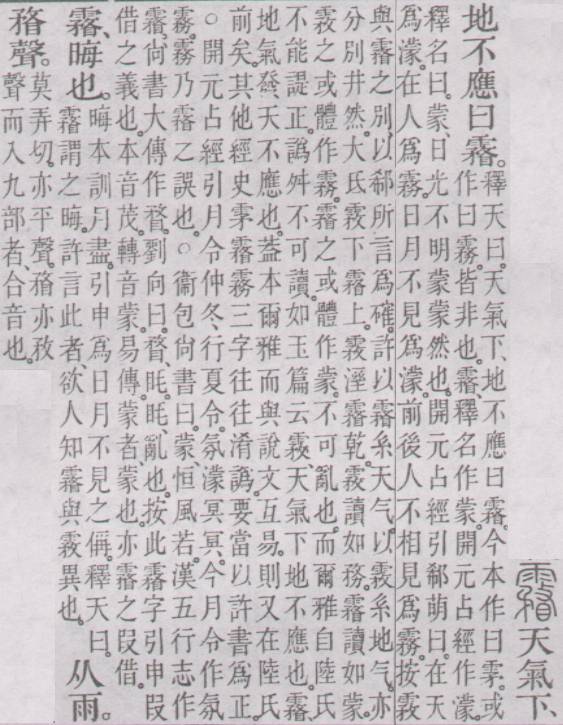 霿天氣下、
地不應曰霿。
釋天曰。天氣下、地不應曰霿。今本作曰雺。或
作曰霧。皆非也。霿、釋名作蒙。開元占經作濛。
釋名曰。蒙、日光不明蒙蒙然也。開元占經引郗萌曰。在天
爲濛。在人爲霧。日月不見爲濛。前後人不相見爲霧。按霧
與霿之別。以郗所言爲確。許以霿系天气。以霚系地气。亦
分別井然。大氐霚下霿上。霚溼霿乾。霚讀如務。霿讀如蒙。
霚之或體作霧。霿之或體作蒙。不可亂也。而爾雅自陸氏
不能諟正。譌舛不可讀。如玉篇云霚、天氣下地不應也。霿、
地氣發天不應也。葢本爾雅而與說文互易。則又在陸氏
前矣。其他經史雺霿霧三字往往淆譌。要當以許書爲正。
○開元占經引月令仲冬。行夏令。氛濛冥冥。今月令作氛
霧。霧乃霿之誤也。○衞包尙書曰。蒙、恒風若。漢五行志作
霿。尙書大傳作瞀。劉向曰。瞀、眊。眊、亂也。按此霿字引申叚
借之義也。本音茂。轉音蒙。易傳。蒙者、蒙也。亦霿之叚借。
霿、晦也。
晦本訓月盡。引申爲日月不見之偁。釋天曰。
霿謂之晦。許言此者、欲人知霿與霚異也。
从雨。
瞀聲。
莫弄切。亦平聲。瞀亦敄
聲而入九部者、合音也。